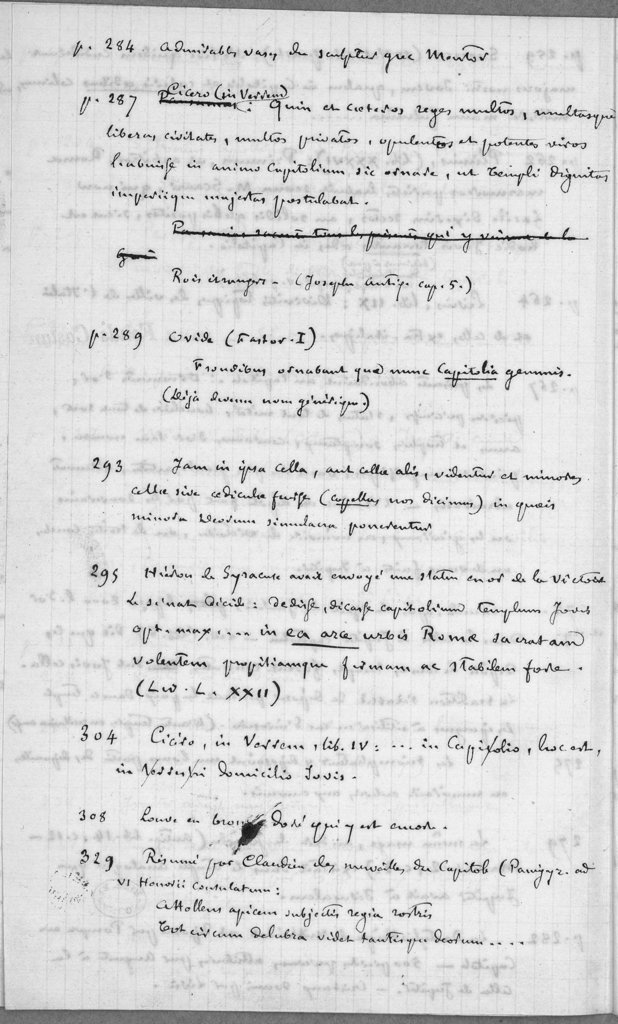 p. 284 Admirables vases du sculpteur grec Mentor
p. 287 Pausanias Cicero (in Verrem) : Quin et cæteros reges multos, multasque
liberas civitates, multos privatos, opulentos et potentes viros
habuisse in animo Capitolium sic ornare, ut templi dignitas
imperiique majestas postulabat.
Pausanias tous les présents qui y de la
Rois étrangers - (Joseph. Antiq. cap. 5.)
p. 289 Ovide (Fastor. I)
Frondibus ornabant quæ nunc Capitolia gemmis.
(Déjà devenu nom générique.)
293 Jam in ipsa cella, aut cellæ alis, videntur et minores
cellæ sive ædiculæ fuisse (cappellas nos dicimus) in quæis
minora Deorum simulacra ponerentur
295 Hiéron de Syracuse avait envoyé une statue en or de la Victoire
Le sénat décide : dedisse, dicasse capitolium templum Jovis
opt. max .... in ea arce urbis Romæ sacratam
volentem propitiamque firmam ac stabilem fore.
(Liv. L. XXII)
304 Cicéro, in Verrem, lib. IV : ... in Capitolio, hoc est,
in terrestri domicilio Jovis.
308 Louve en bronze doré qui y est encore.
329 Résumé par Claudien des merveilles du Capitole (Panégyr. ad
VI Honorii consulatum :
Attollens apicem subjectis regia rostris
Tot circum delubra videt tantisque deorum ....